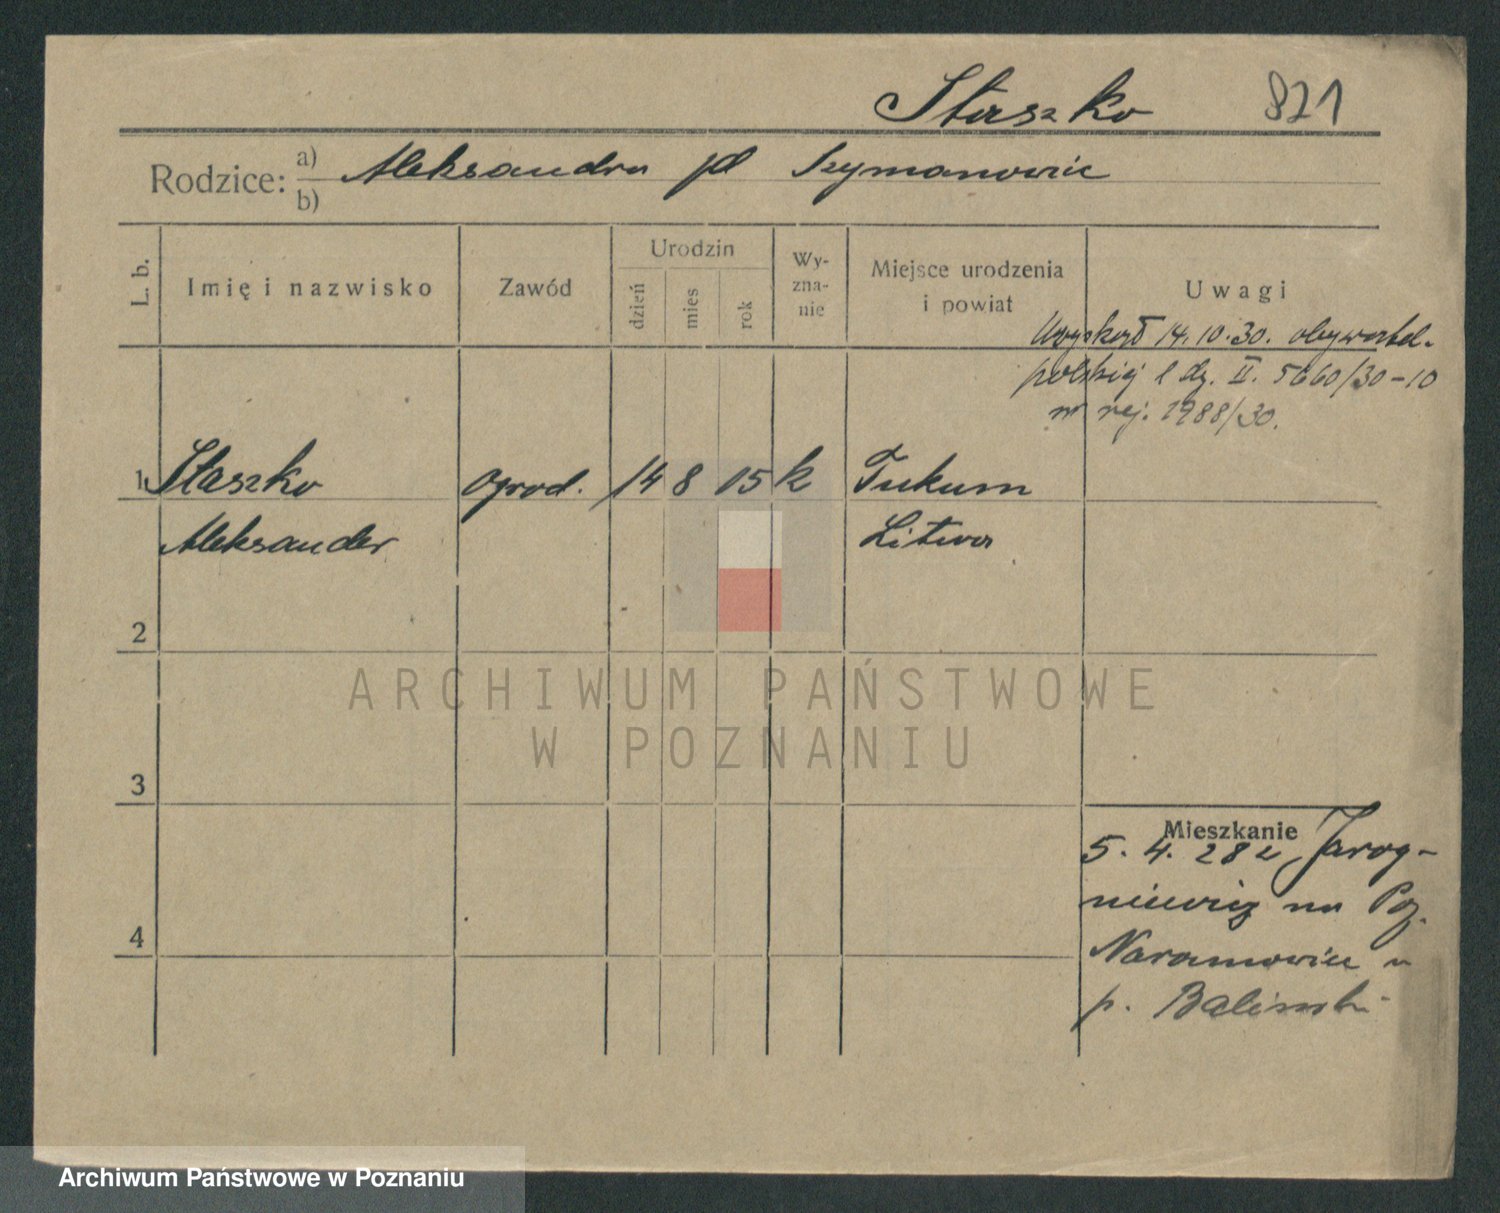 Staszko 821
Rodzice: a) Aleksandra
b)
L. b. Imię i nazwisko Zawód Urodzin dzień mies rok Wy-zna-nie Miejsce urodzenia i powiat Uwagi
Uzyskał 14.10.30. obywatel-
polskiej l dz. II. 5660/30-10
nr rej. 1988/30.
1 Staszko ogrod. 14 8 05 k Tukum
Aleksander Litwa
2
ARCHIWUM PAŃSTWOWE
W POZNANIU
3
Mieszkanie
5. 4. 28 z Jarog-
niewic na Poz.
4
Naramowice u
p.
Archiwum Państwowe w Poznaniu